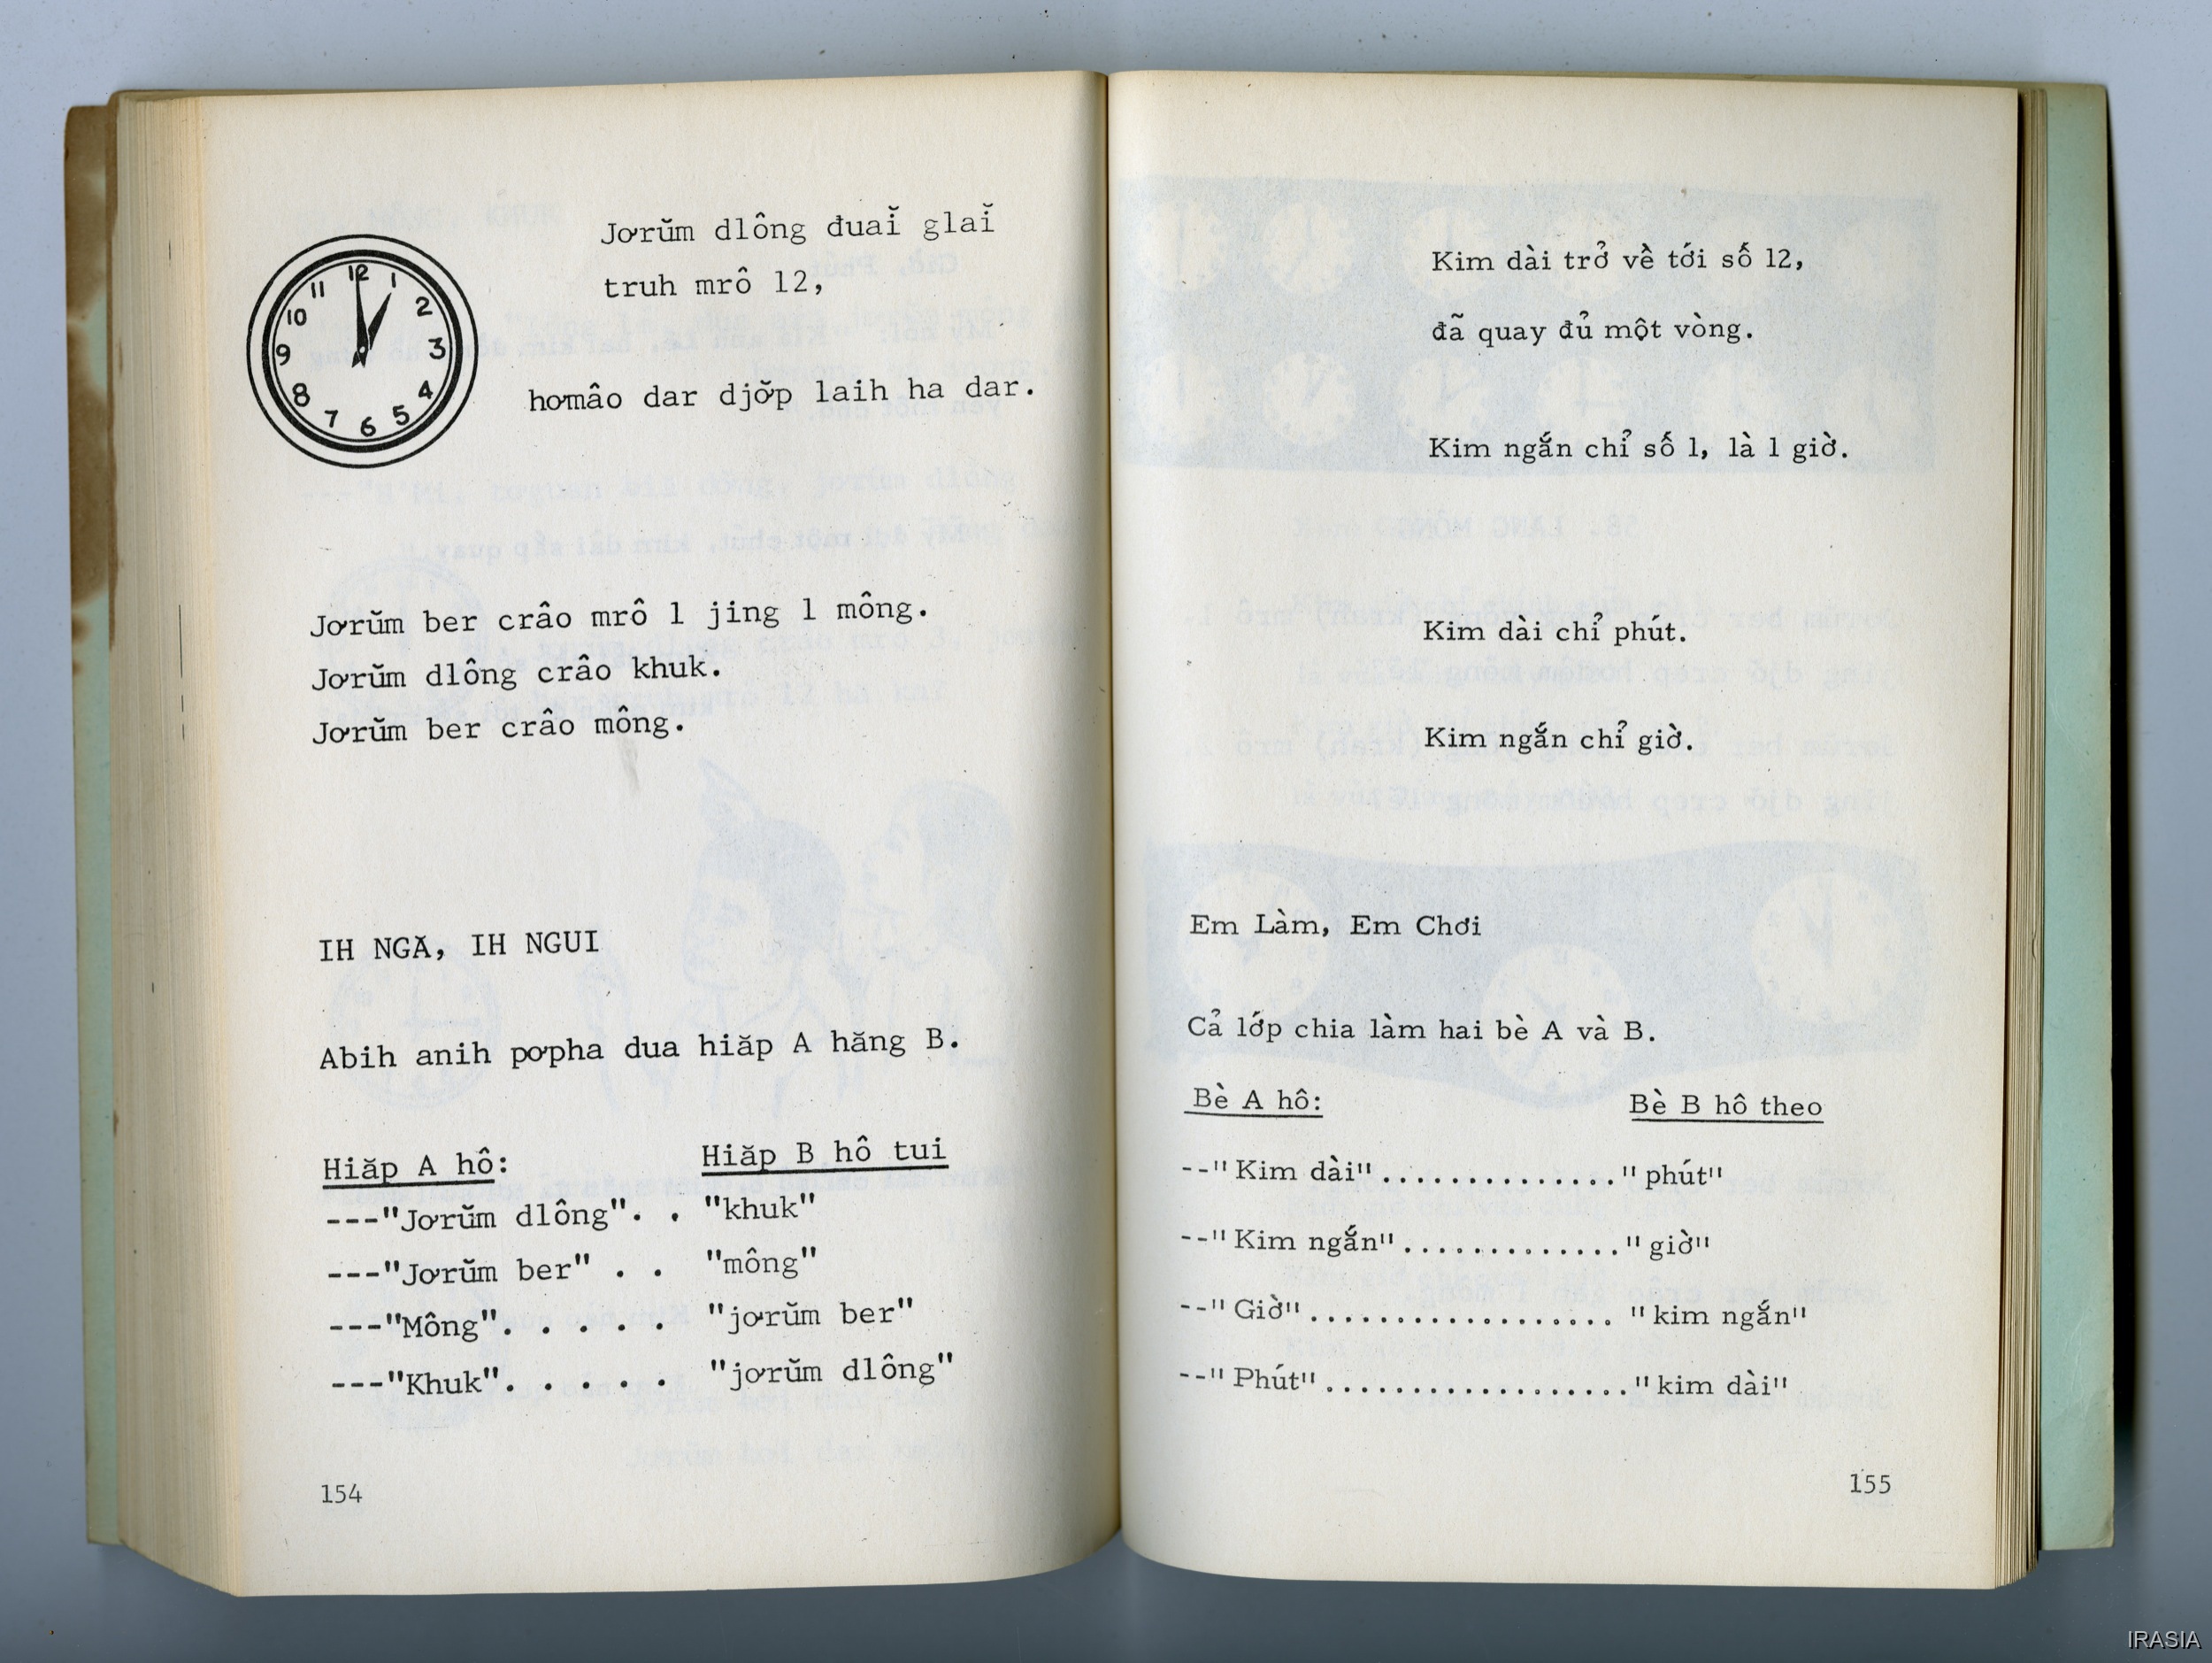 12
1
2
3
4
5
6
7
8
9
10
11
Jơrŭm dlông đuaĭ glaĭ
truh mrô 12,
hơmâo dar djơ̆p laih ha dar.
Jơrŭm ber crâo mrô 1 jing 1 mông.
Jơrŭm dlông crâo khuk.
Jơrŭm ber crâo mông.
IH NGĂ, IH NGUI
Abih anih pơpha dua hiăp A hăng B.
Hiăp A hô: Hiăp B hô tui
---"Jơrŭm dlông". . "khuk"
---"Jơrŭm ber" . . "mông"
---"Mông". . . . . "jơrŭm ber"
---"Khuk". . . . . "jơrŭm dlông"
154
Kim dài trở về tới số 12,
đã quay đủ một vòng.
Kim ngắn chỉ số 1, là 1 giờ.
Kim dài chỉ phút.
Kim ngắn chỉ giờ.
Em Làm, Em Chơi
Cả lớp chia làm hai bè A và B.
Bè A hô: Bè B hô theo
--"Kim dài"..............."phút"
--"Kim ngắn".............."giờ"
--"Giờ".................. "kim ngắn"
--"Phút".................."kim dài"
155
IRASIA